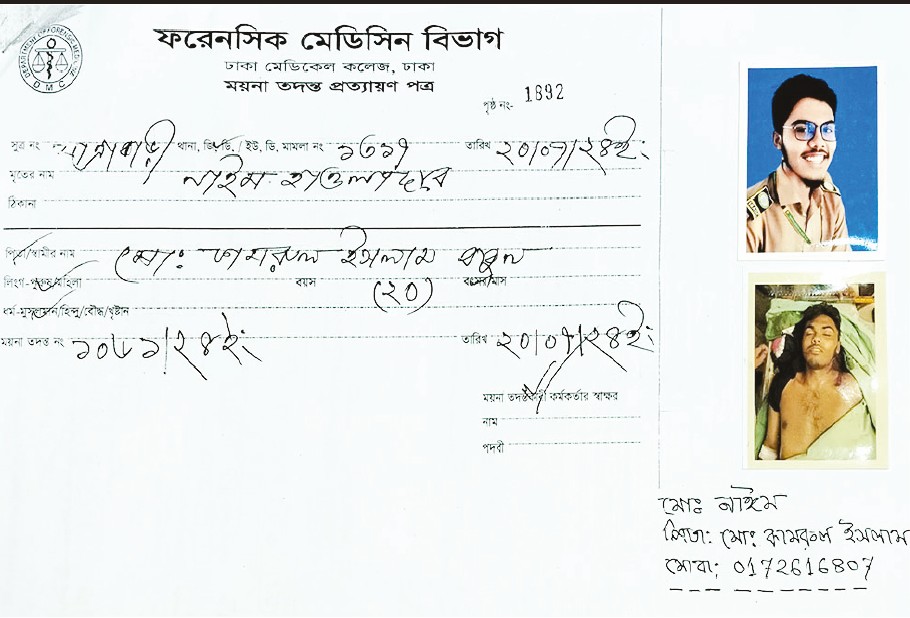 DEPARTMENT OF FORENSIC MEDICINE
DMC
ফরেনসিক মেডিসিন বিভাগ
ঢাকা মেডিকেল কলেজ, ঢাকা
ময়না তদন্ত প্রত্যায়ণ পত্র
পৃষ্ঠ নং- 1892
সুত্র নং যাত্রাবাড়ী থানা, জি, ডি, / ইউ, ডি, মামলা নং তারিখ ২০/০৭/২৪ইং
মৃতের নাম নাইম হাওলাদার
ঠিকানা
পিতা/স্বামীর নাম মোঃ কামরুল ইসলাম
লিংগ-পুরুষ/মহিলা বয়স (২০) বৎসর/মাস
ধর্ম-মুসলমান/হিন্দু/বৌদ্ধ/খৃষ্টান
ময়না তদন্ত নং তারিখ ২০/০৭/২৪ইং
ময়না তদন্তকারী কর্মকর্তার স্বাক্ষর
নাম
পদবী
মোঃ নাঈম
পিতা: মোঃ কামরুল ইসলাম
মোবা: 0172616807